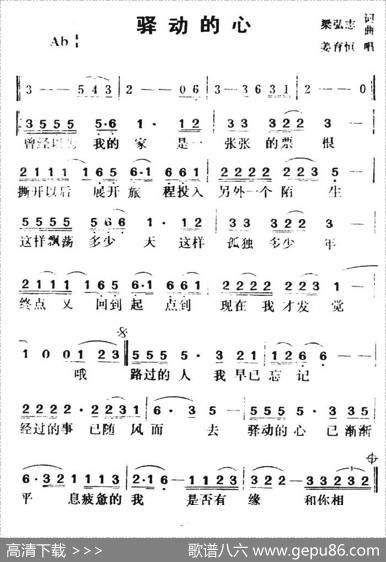 驿动的心
梁弘志 词曲
Ab
姜育恒 唱
3 — — 5 4 3 | 2 — — 0 6 | 3 — 6 3 1 | 2 — — 0 |
3 5 5 5 5 5·6 | 1 · 1 2 | 3 3 3 2 2 3 | 2 — — — |
曾经以为 我的 家 是一 张张 的票 根
2 1 1 1 1 6 5 | 6·1 6 6 1 | 2 2 2 2 2 2 3 | 1 — — — |
撕开以后 展开 旅 程投入 另外一个 陌 生
5 5 5 5 5 6 6 | 1 · 1 2 | 3 3 3 2 2 3 | 2 — — — |
这样飘荡 多少 天 这样 孤独 多少 年
2 1 1 1 1 6 5 | 6·6 6 1 | 2 2 2 2 2 2 3 | 1 — — —
终点又 回到起 点到 现在我才发觉
1 0 0 1 2 3 | 5 5 5 5 · 5 | 3 · 2 3 2 1 | 1 2 6 6 — |
哦 路过的人 我早已忘记
2 2 2 2 · 2 2 3 1 | 6 · 3 5 — | 5 5 5 5 · 5 | 3 · 3 3 5
经过的事 已随 风而 去 驿动的心 已渐渐
6·3 2 1 1 1 3 | 2·1 6 — — | 3 0 0 2 1 2 | 3 — — 3 3 2 3 2
平 息疲惫的 我 是否有 缘 和你相
高清下载 >>>
歌谱八六 www.gepu86.com